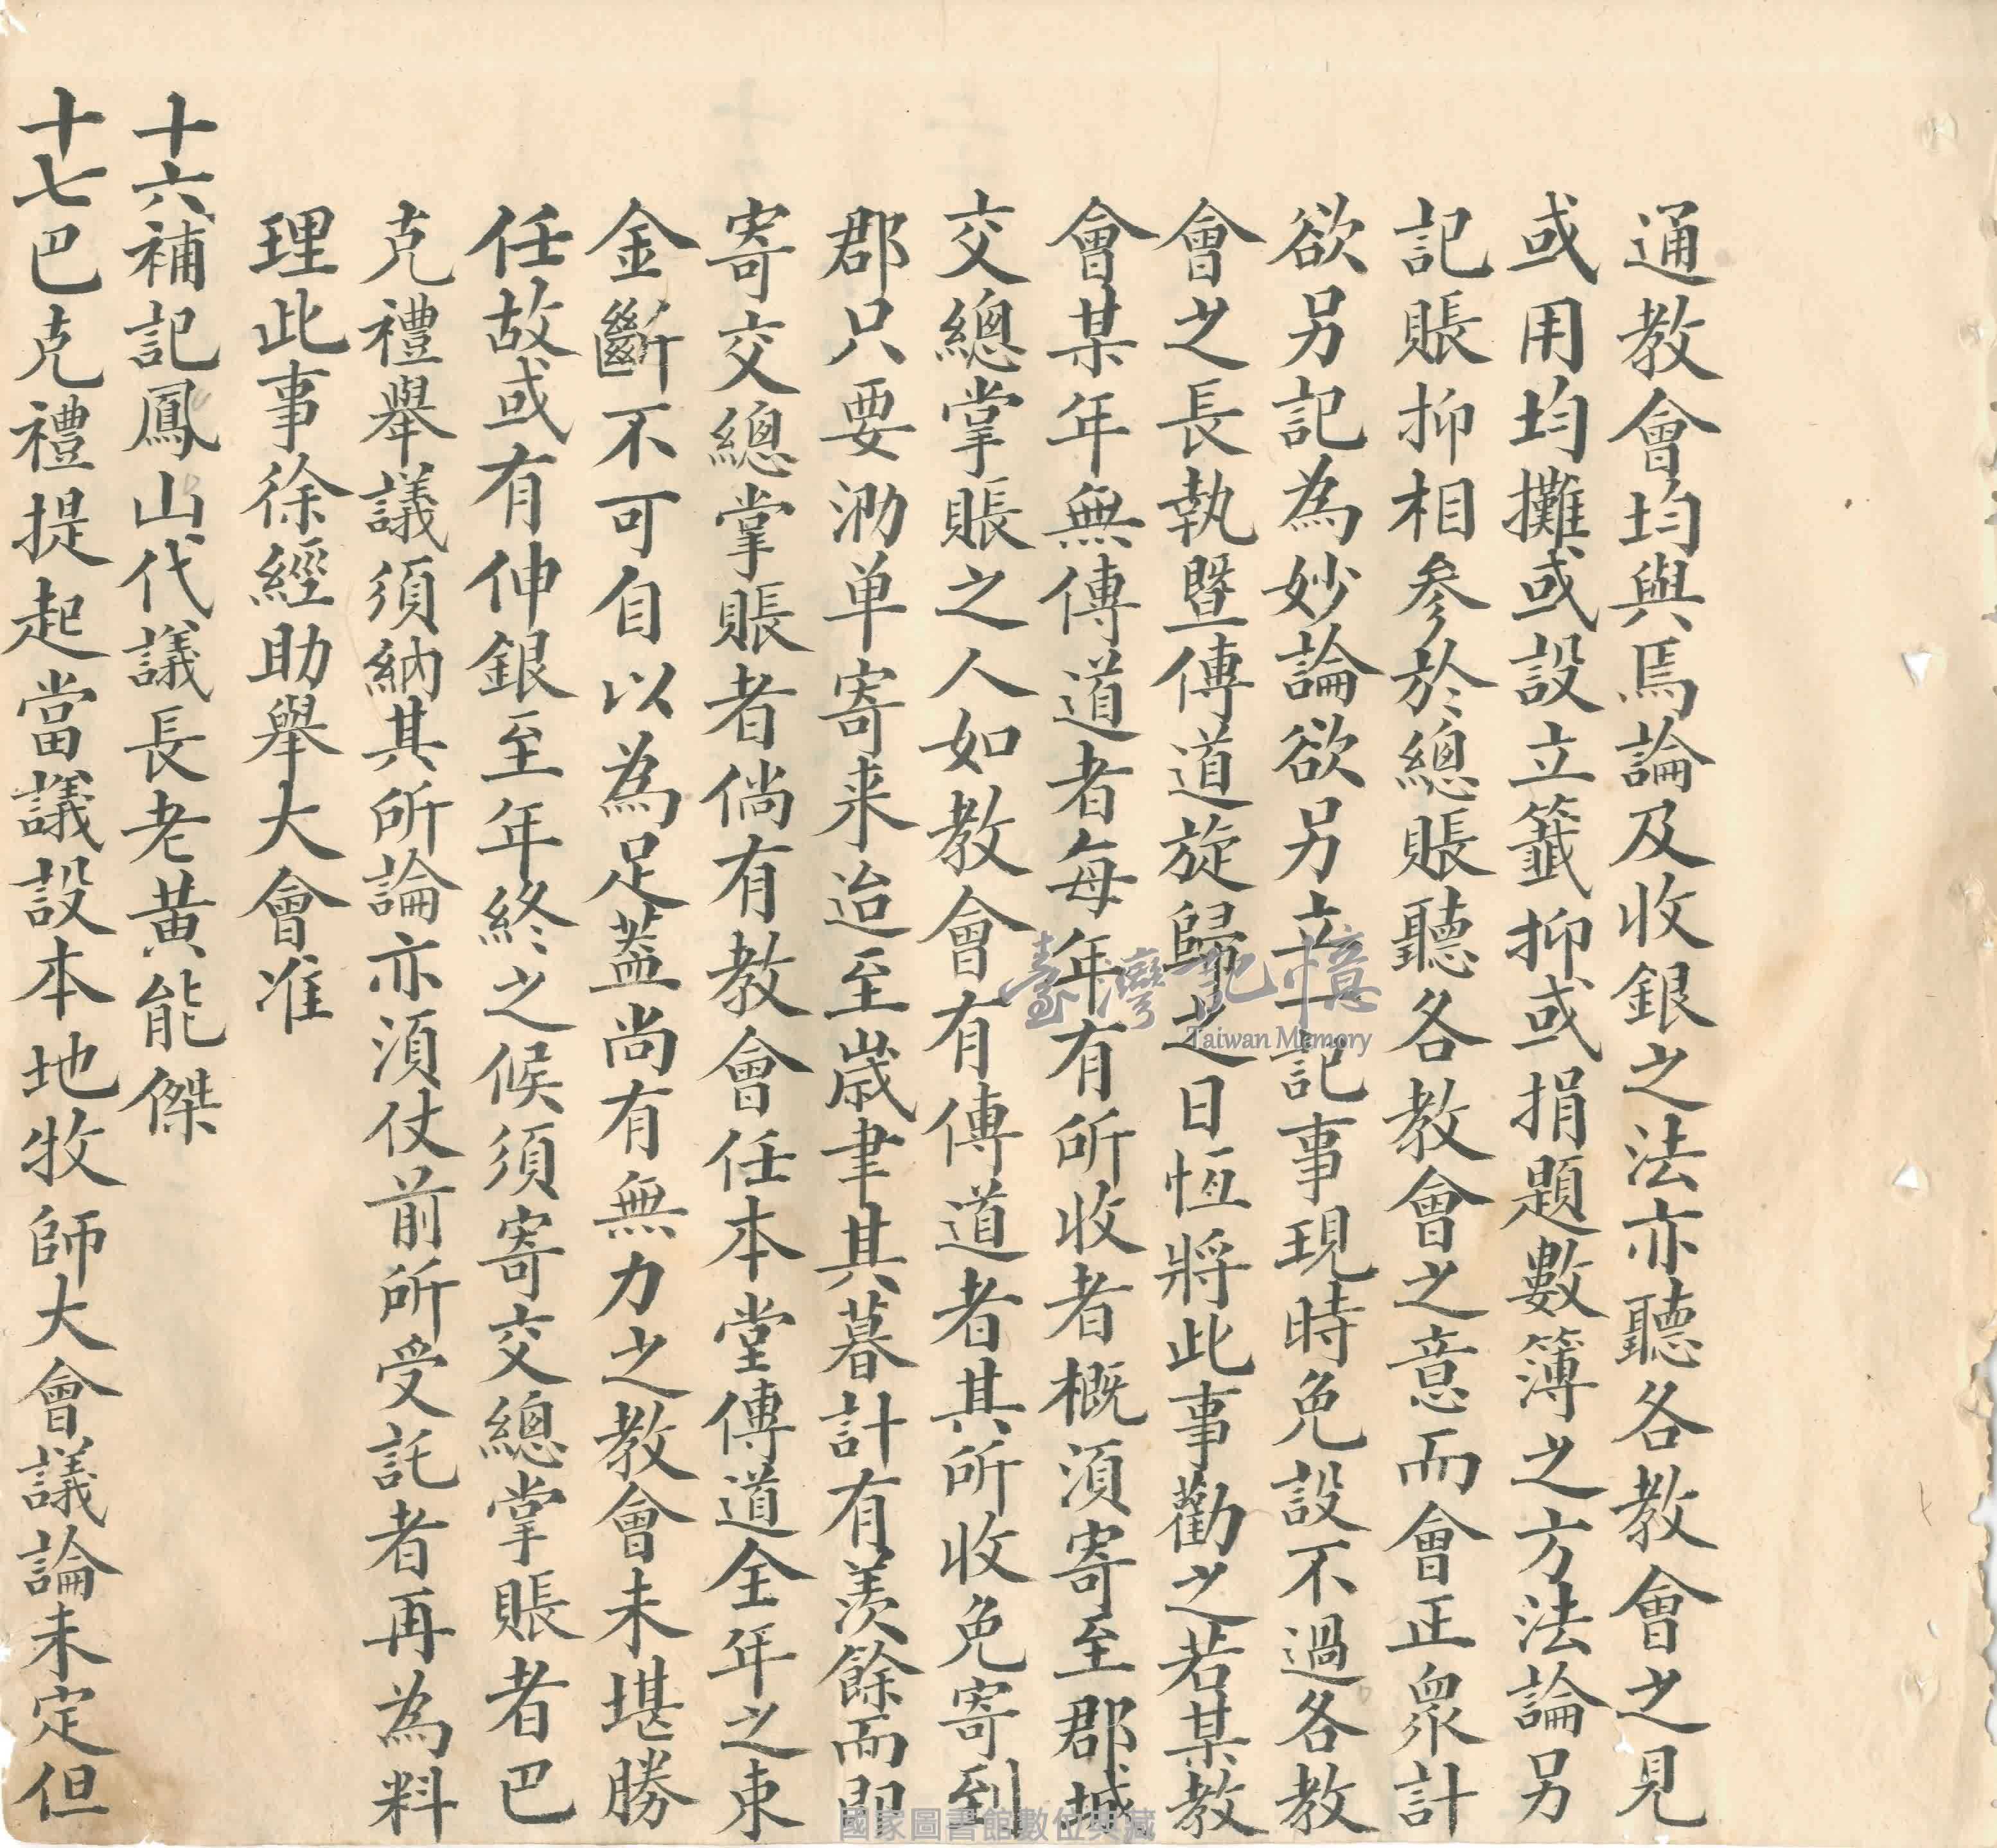 通教會均與焉論及收銀之法亦聽各教會之見
或用均攤或設立籤抑或捐題數簿之方法論另
記賬抑相參於總賬聽各教會之意而會正眾計
欲另記為妙論欲另立一記事現時免設不過各教
會之長執暨傳道旋歸之日恆將此事勸之若某教
會某年無傳道者每年有所收者概須寄至郡城
交總掌賬之人如教會有傳道者其所收免寄到
郡只要泐单寄来迨至歲聿其暮計有羨餘而即
寄交總掌賬者倘有教會任本堂傳道全年之束
金斷不可自以為足蓋尚有無力之教會未堪勝
任故或有伸銀至年終之候須寄交總掌賬者巴
克禮舉議須納其所論亦須仗前所受託者再為料
理此事徐經助舉大會准
十六補記鳳山代議長老黃能傑
十七巴克禮提起當議設本地牧師大會議論未定但
臺灣記憶
Taiwan Memory
國家圖書館數位典藏